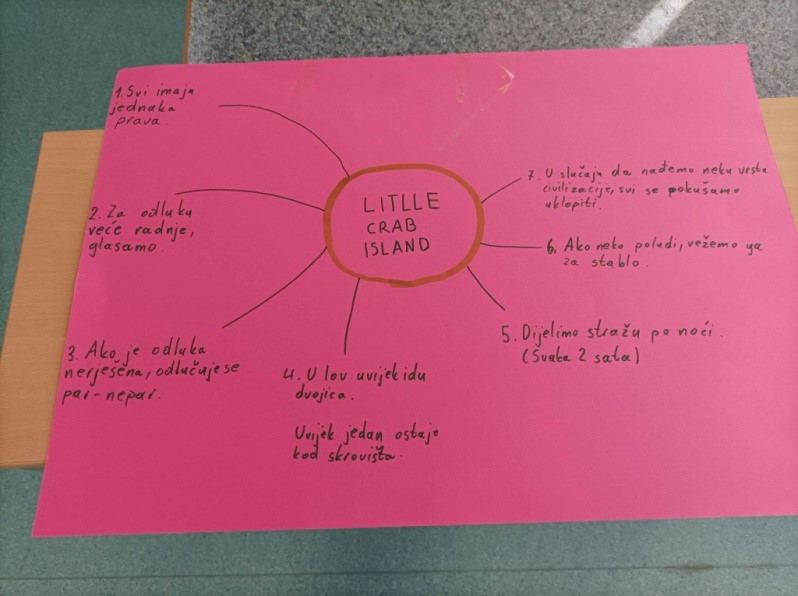 LITLLE
CRAB
ISLAND
1. Svi imaju
jednaka
prava.
2. Za odluku
veće radnje,
glasamo.
3. Ako je odluka
nerješena, odlučuje se
par-nepar.
4. U lov uvijek idu
dvojica.
Uvijek jedan ostaje
kod skrovišta.
5. Dijelimo stražu po noći.
(Svaka 2 sata)
6. Ako neko poludi, vežemo ga
za stablo.
7. U slučaju da nađemo neku vrstu
civilizacije, svi se pokušamo
uklopiti.